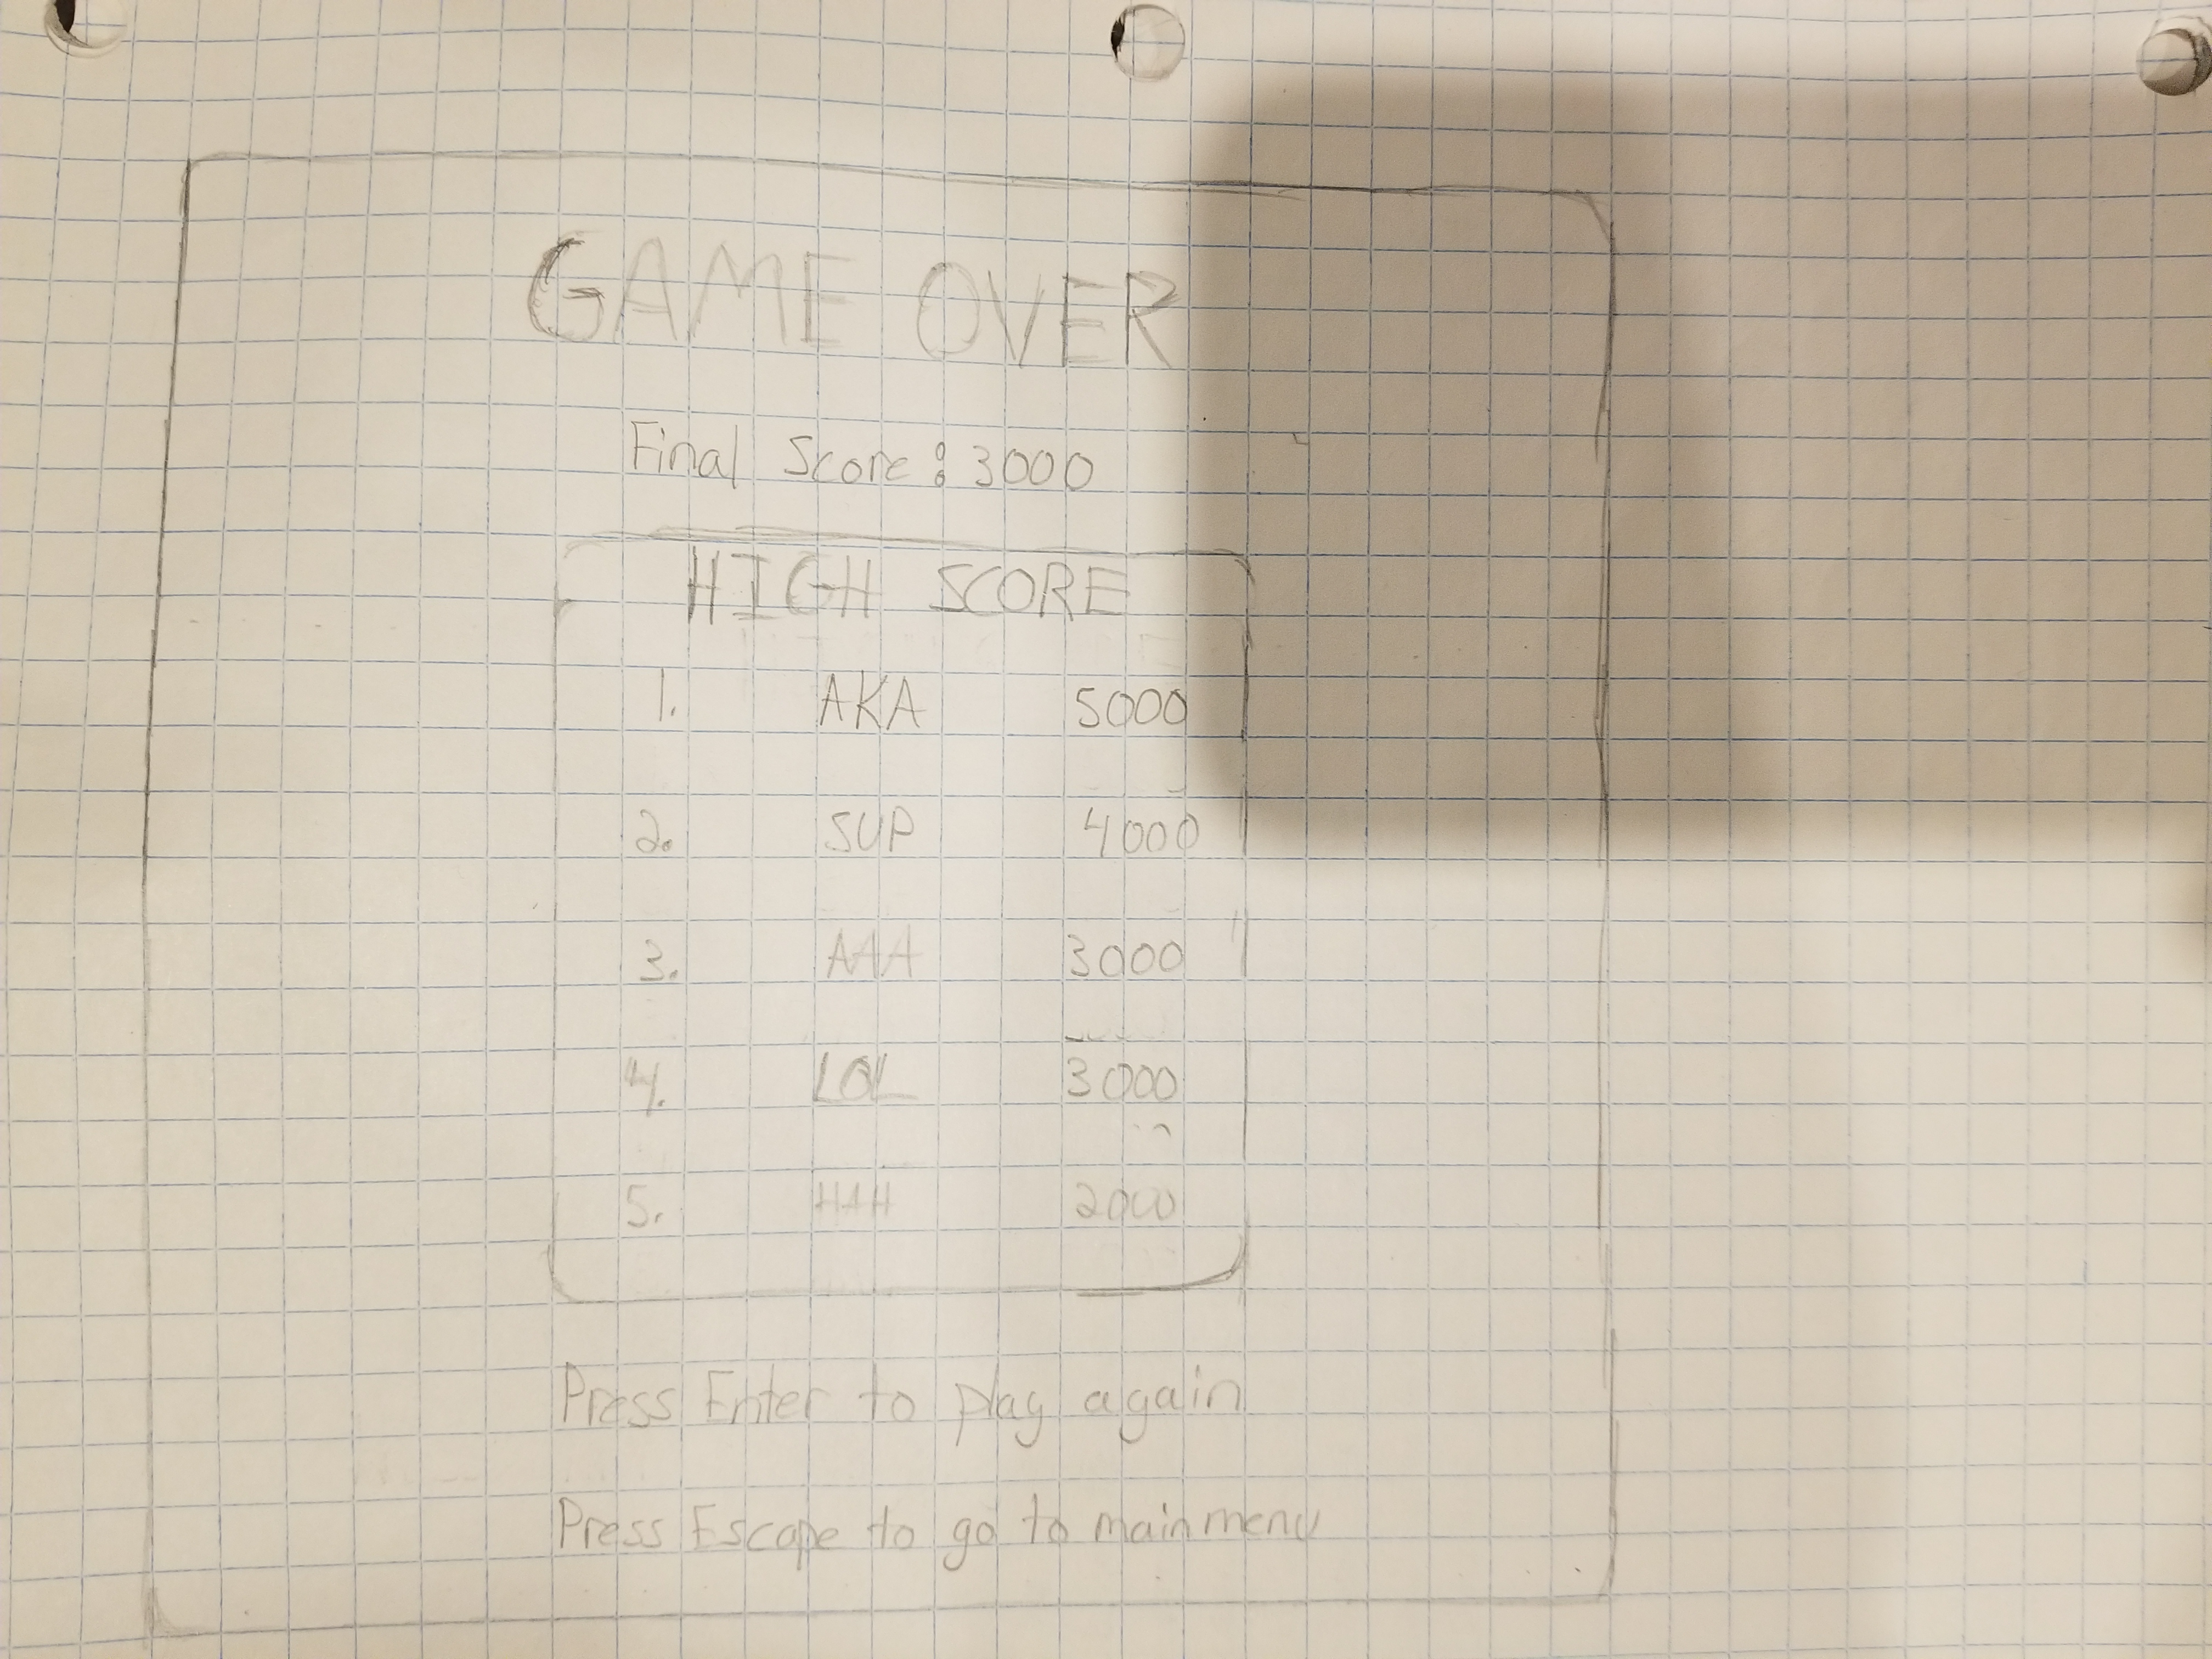 GAME OVER
Final Score: 3000
HIGH SCORE
1. AKA 5000
2. SUP 4000
3. AAA 3000
4. LOL 3000
5. HAH 2000
Press Enter to play again
Press Escape to go to main menu